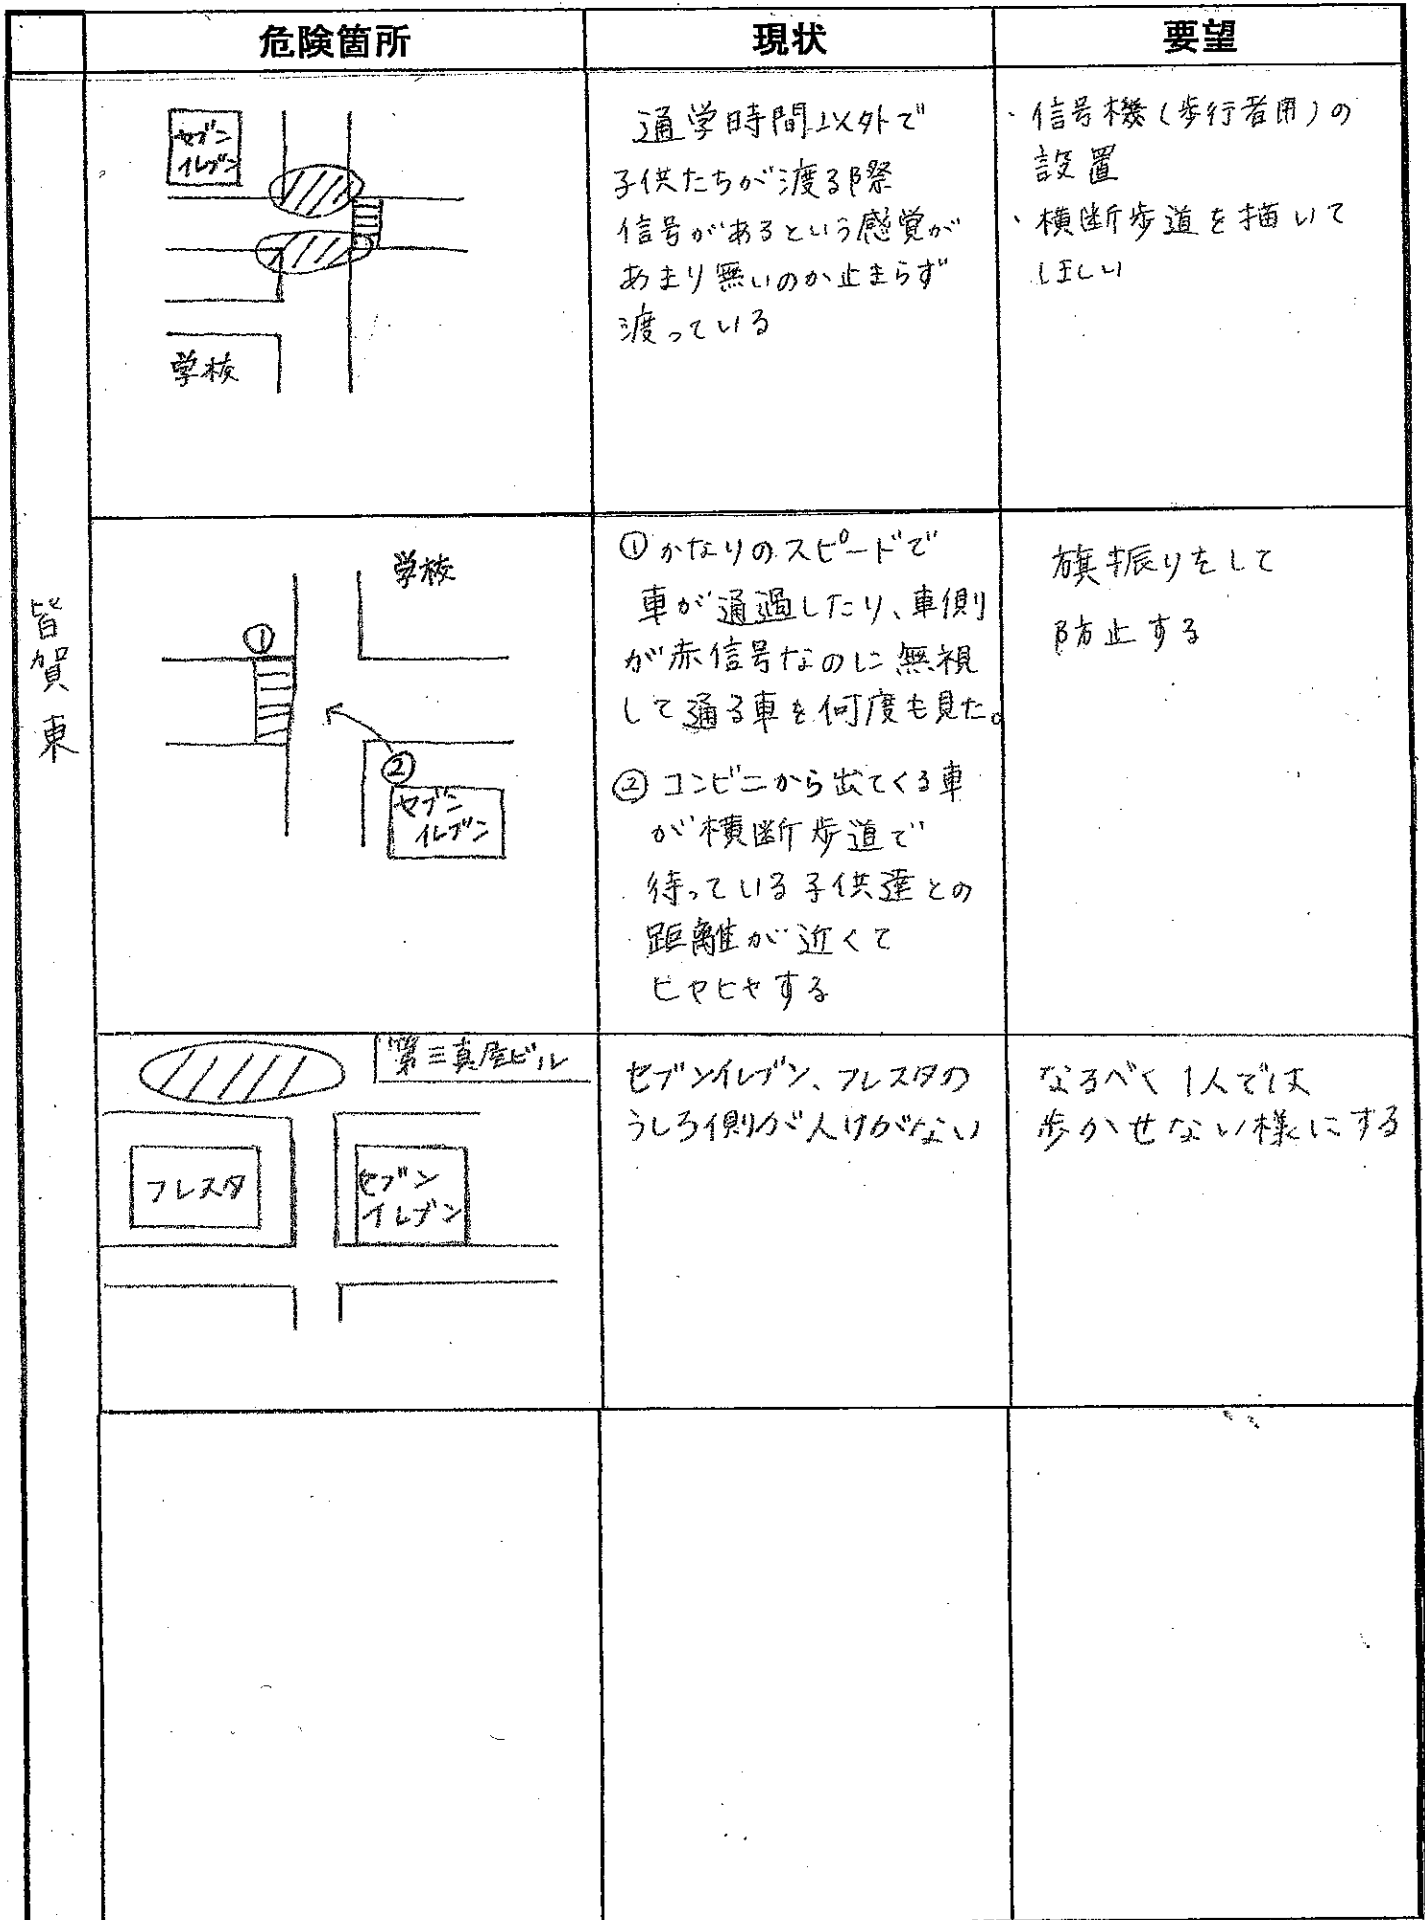 危険箇所
現状
要望
皆賀東
セブン
イレブン
学校
通学時間以外で
子供たちが渡る際
信号があるという感覚が
あまり無いのか止まらず
渡っている
・信号機(歩行者用)の
設置
・横断歩道を描いて
ほしい
学校
①
②
セブン
イレブン
①かなりのスピードで
車が通過したり、車側
が赤信号なのに無視
して通る車を何度も見た。
②コンビニから出てくる車
が横断歩道で
待っている子供達との
距離が近くて
ヒヤヒヤする
旗振りをして
防止する
第三真屋ビル
フレスタ
セブン
イレブン
セブンイレブン、フレスタの
うしろ側が人けがない
なるべく1人では
歩かせない様にする